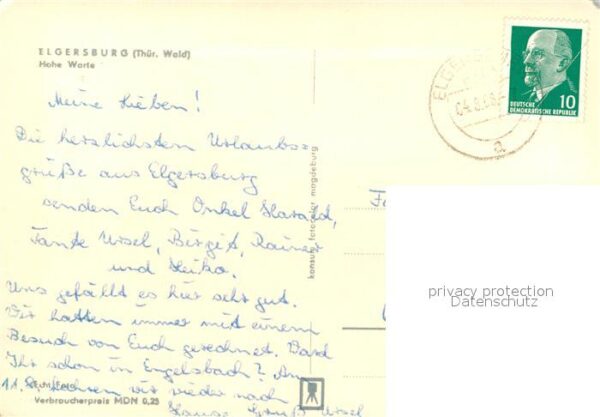 ELGERSBURG (Thür. Wald)
Hohe Warte
Meine Lieben!
Die herzlichsten Urlaubs-
grüße aus Elgersburg
senden Euch Onkel Harald,
Tante Ursel, Birgit, Rainer
und Heiko.
Uns gefällt es hier sehr gut.
Wir hatten immer mit einem
Besuch von Euch gerechnet.
Ihr schon in Engelsbach? Am
11.8. fahren wir wieder nach
Hause. Gruß Ursel
Verbraucherpreis MDN 0,25
konsum fotocolor magdeburg
DEUTSCHE
DEMOKRATISCHE REPUBLIK
10
a
privacy protection
Datenschutz